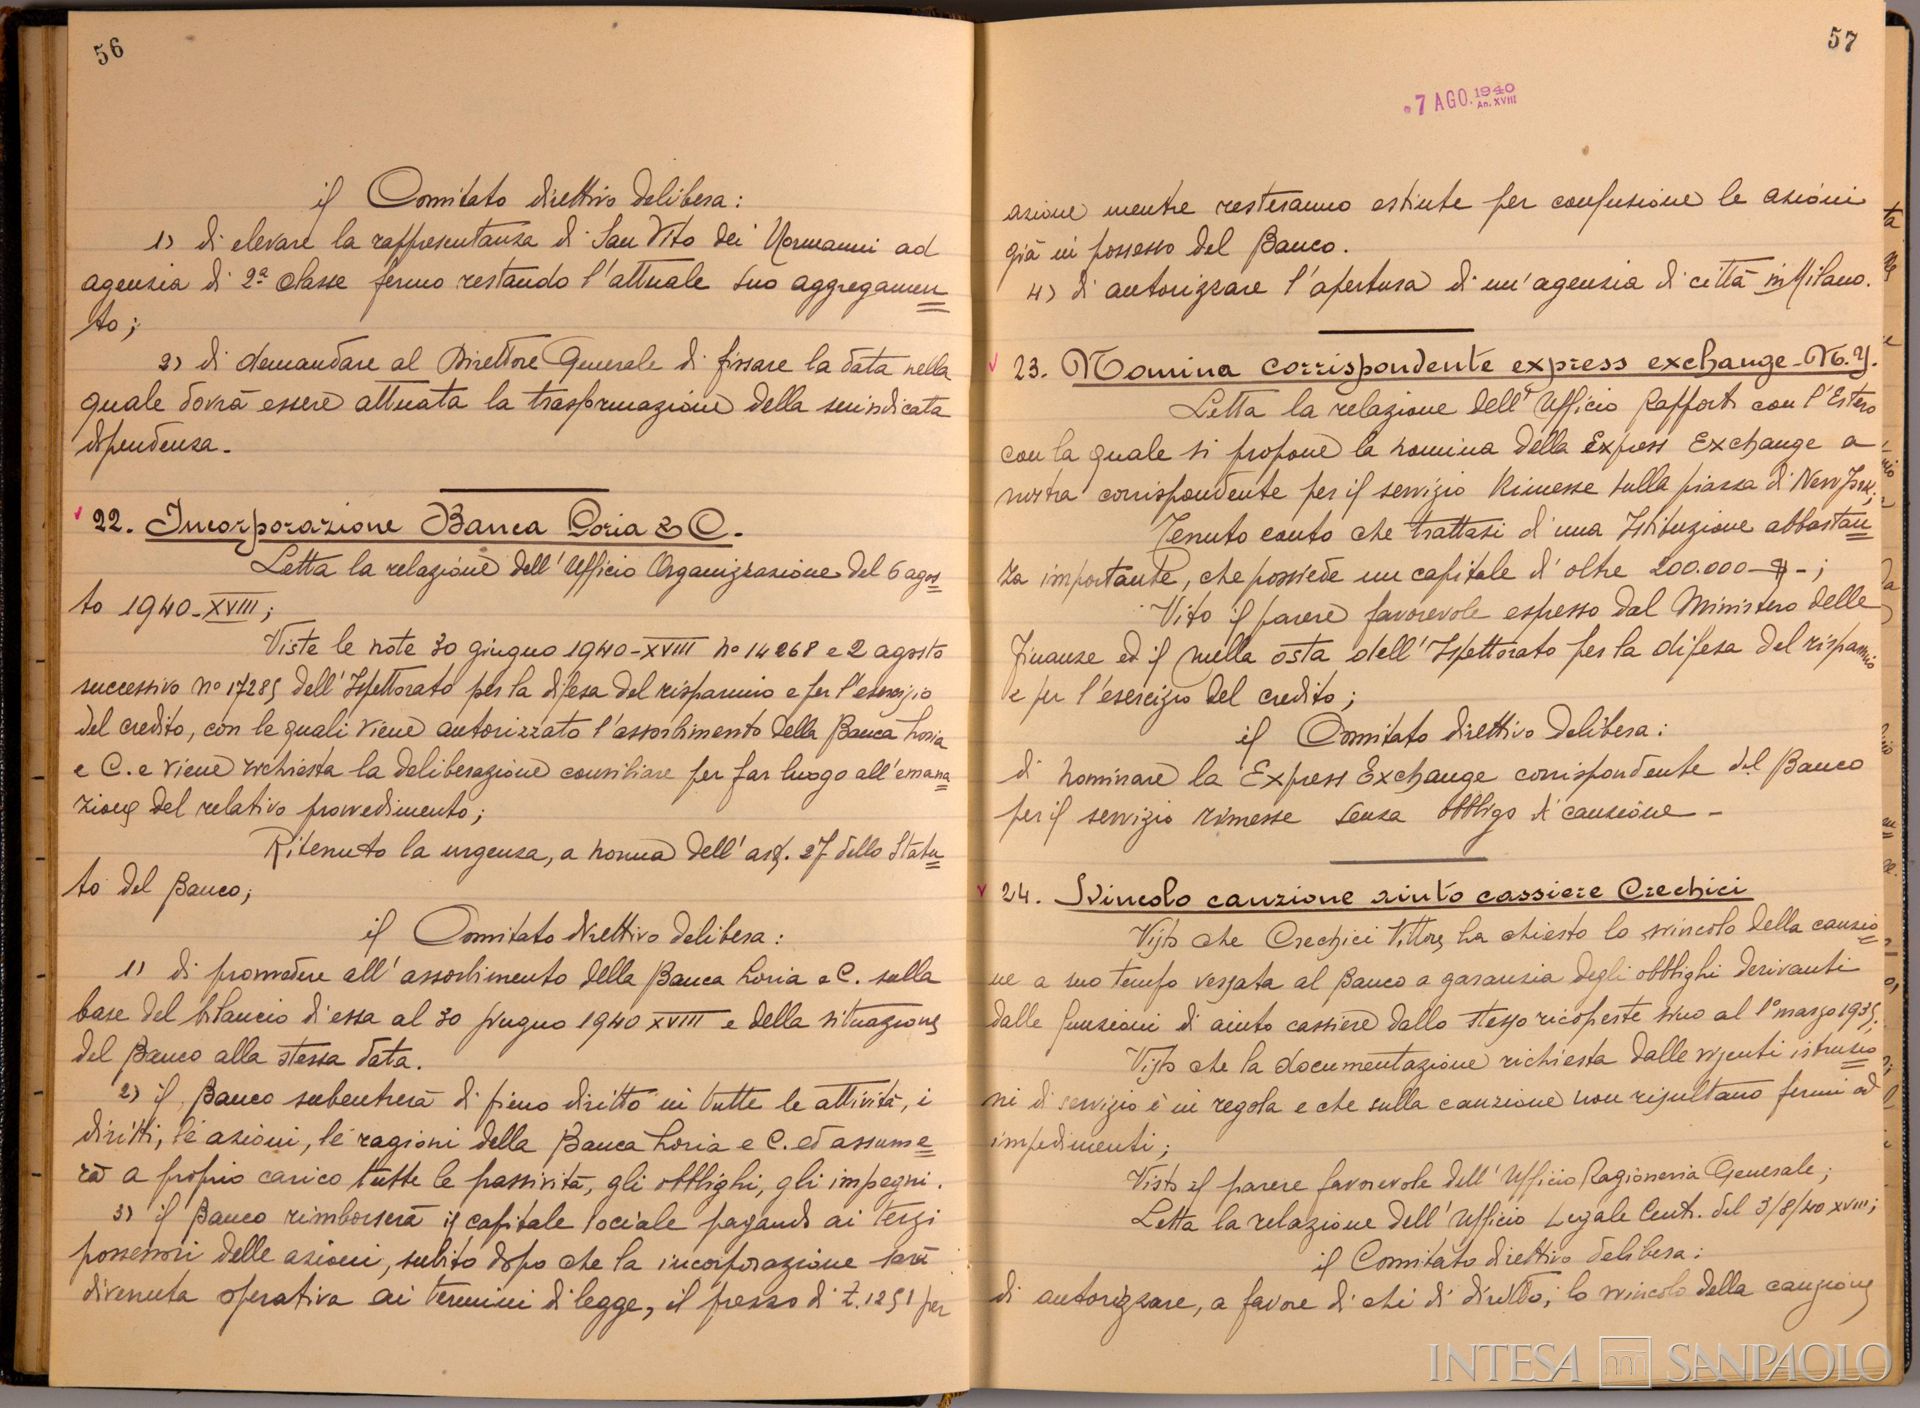 56
il Comitato direttivo delibera:
1) di elevare la rappresentanza di San Vito dei Normanni ad
agenzia di 2ª classe fermo restando l'attuale suo aggregamen
to;
2) di demandare al Direttore Generale di fissare la data nella
quale dovrà essere attuata la trasformazione della suindicata
dipendenza.-
22. Incorporazione Banca Loria & C.-
Letta la relazione dell'Ufficio Organizzazione del 6 agos
to 1940-XVIII;
Viste le note 30 giugno 1940-XVIII n° 14268 e 2 agosto
successivo n° 17285 dell'Ispettorato per la difesa del risparmio e per l'esercizio
del credito, con le quali viene autorizzato l'assorbimento della Banca Loria
e C. e viene richiesta la deliberazione consiliare per far luogo all'emana
zione del relativo provvedimento;
Ritenuto la urgenza, a norma dell'art. 27 dello Statu
to del Banco;
il Comitato direttivo delibera:
1) di provvedere all'assorbimento della Banca Loria e C. sulla
base del bilancio di essa al 30 giugno 1940 XVIII e della situazione
del Banco alla stessa data.
2) il Banco subentrerà di pieno diritto in tutte le attività, i
diritti, le azioni, le ragioni della Banca Loria e C. ed assume
rà a proprio carico tutte le passività, gli obblighi, gli impegni.
3) il Banco rimborserà il capitale sociale pagando ai terzi
possessori delle azioni, subito dopo che la incorporazione sarà
divenuta operativa ai termini di legge, il prezzo di £. 1251 per
57
7 AGO. 1940
An. XVIII
azione mentre resteranno estinte per confusione le azioni
già in possesso del Banco.
4) di autorizzare l'apertura di un'agenzia di città in Milano.
23. Nomina corrispondente express exchange-N.Y.
Letta la relazione dell'Ufficio Rapporti con l'Estero
con la quale si propone la nomina della Express Exchange a
nostra corrispondente per il servizio Rimesse sulla piazza di New York;
Tenuto conto che trattasi d'una Istituzione abbastan
za importante, che possiede un capitale d'oltre 200.000-$-;
Vito il parere favorevole espresso dal Ministero delle
Finanze ed il nulla osta dell'Ispettorato per la difesa del risparmio
e per l'esercizio del credito;
il Comitato direttivo delibera:
di nominare la Express Exchange corrispondente del Banco
per il servizio rimesse senza obbligo di cauzione-
24. Svincolo cauzione aiuto cassiere Crechici
Visto che Crechici Vittore ha chiesto lo svincolo della cauzio
ne a suo tempo versata al Banco a garanzia degli obblighi derivanti
dalle funzioni di aiuto cassiere dallo stesso ricoperte sino al 1° marzo 1935;
Visto che la documentazione richiesta dalle vigenti istruzio
ni di servizio è in regola e che sulla cauzione non risultano fermi od
impedimenti;
Visto il parere favorevole dell'Ufficio Ragioneria Generale;
Letta la relazione dell'Ufficio Legale Cent. del 3/8/40 XVIII;
il Comitato direttivo delibera:
di autorizzare, a favore di chi di diritto, lo svincolo della cauzione
INTESA SANPAOLO